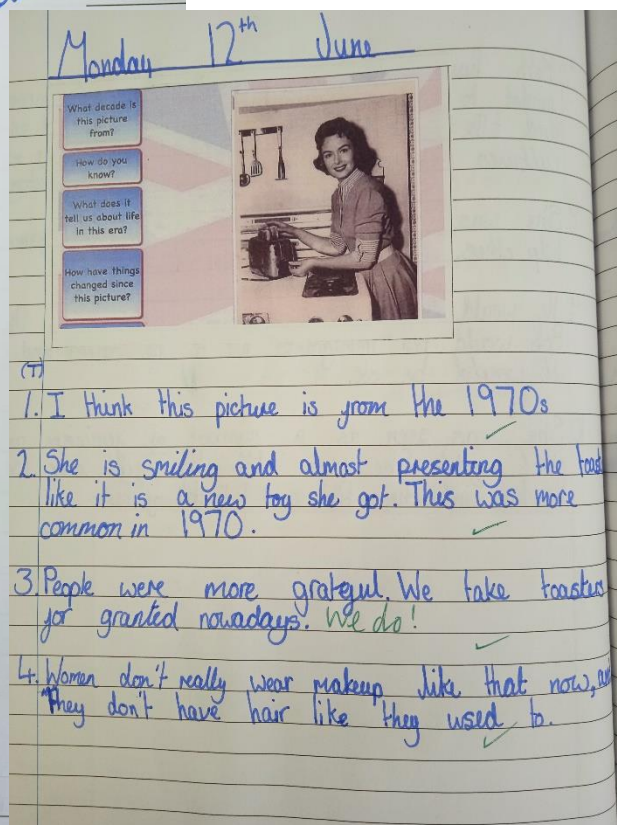 Monday 12th June
What decade is
this picture
from?
How do you
know?
What does it
tell us about life
in this era?
How have things
changed since
this picture?
(T)
1. I think this picture is from the 1970s
2. She is smiling and almost presenting the toast
like it is a new toy she got. This was more
common in 1970.
3. People were more grateful. We take toasters
for granted nowadays. We do!
4. Women don't really wear makeup like that now,
They don't have hair like they used to.